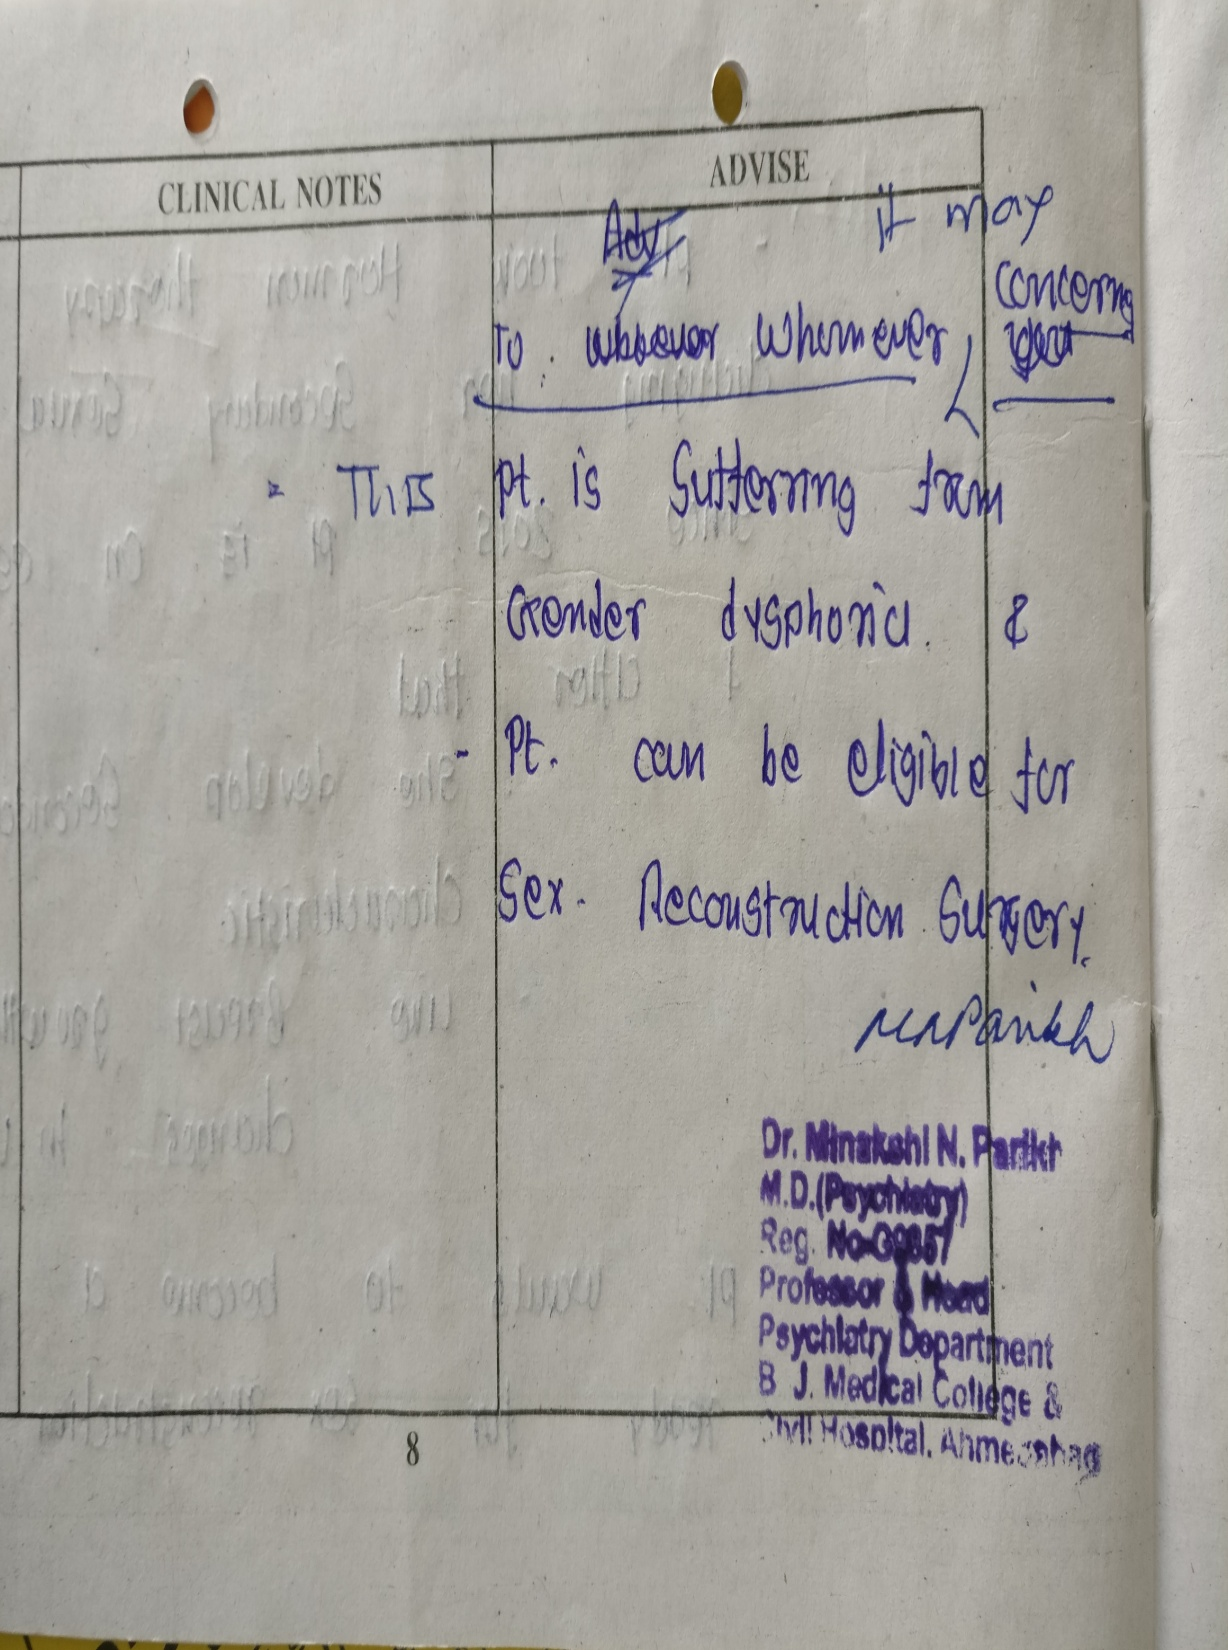 CLINICAL NOTES
ADVISE
Adv
it may
concerning
To. whoever whomever
= This pt. is Sufferring from
Gender dysphoria. &
- Pt. can be eligible for
Sex. Reconstruction Surgery.
MNParikh
Dr. Minakshi N. Parikh
M.D.(Psychiatry)
Reg. No
Professor & Head
Psychiatry Department
B J. Medical College &
Civil Hospital. Ahmedabad
8